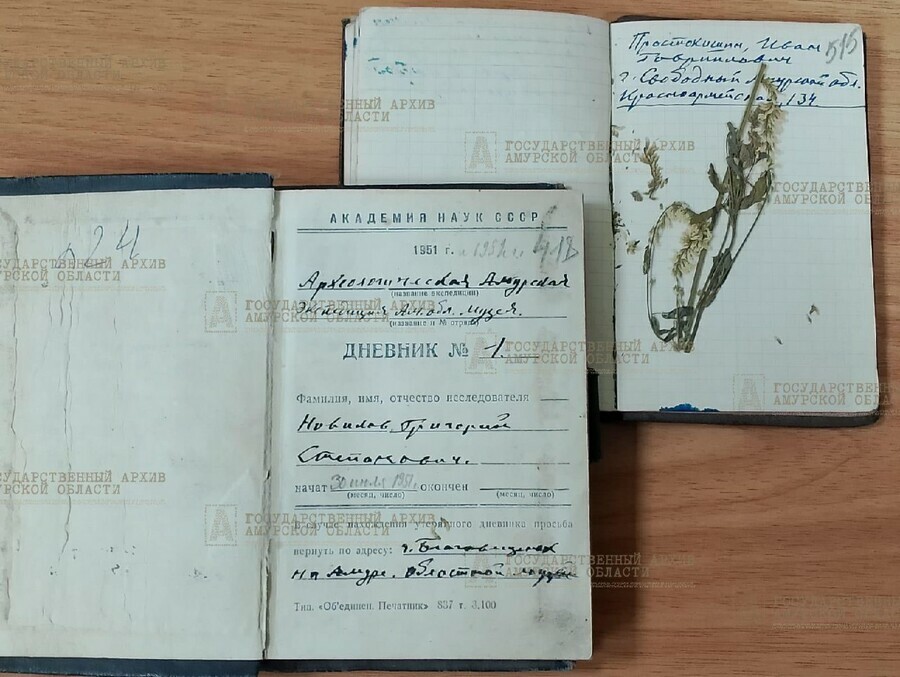 Простокишин, Иван 515
Гавриилович
г. Свободный Амурской обл.
Красноармейская, 134
524
АКАДЕМИЯ НАУК СССР
1951 г. и 1952 г.
Археологическая Амурская
(название экспедиции)
экспедиция Ам. обл. музея.
(название и № отряда)
ДНЕВНИК № 1.
Фамилия, имя, отчество исследователя
Новиков, Григорий
Степанович.
начат 30 июля 1951 г. окончен
(месяц, число) (месяц, число)
В случае нахождения утерянного дневника просьба
вернуть по адресу: г. Благовещенск
на Амуре. Областной музей
Тип. «Об'единен. Печатник» 887 г. 3.100
ГОСУДАРСТВЕННЫЙ АРХИВ
АМУРСКОЙ ОБЛАСТИ